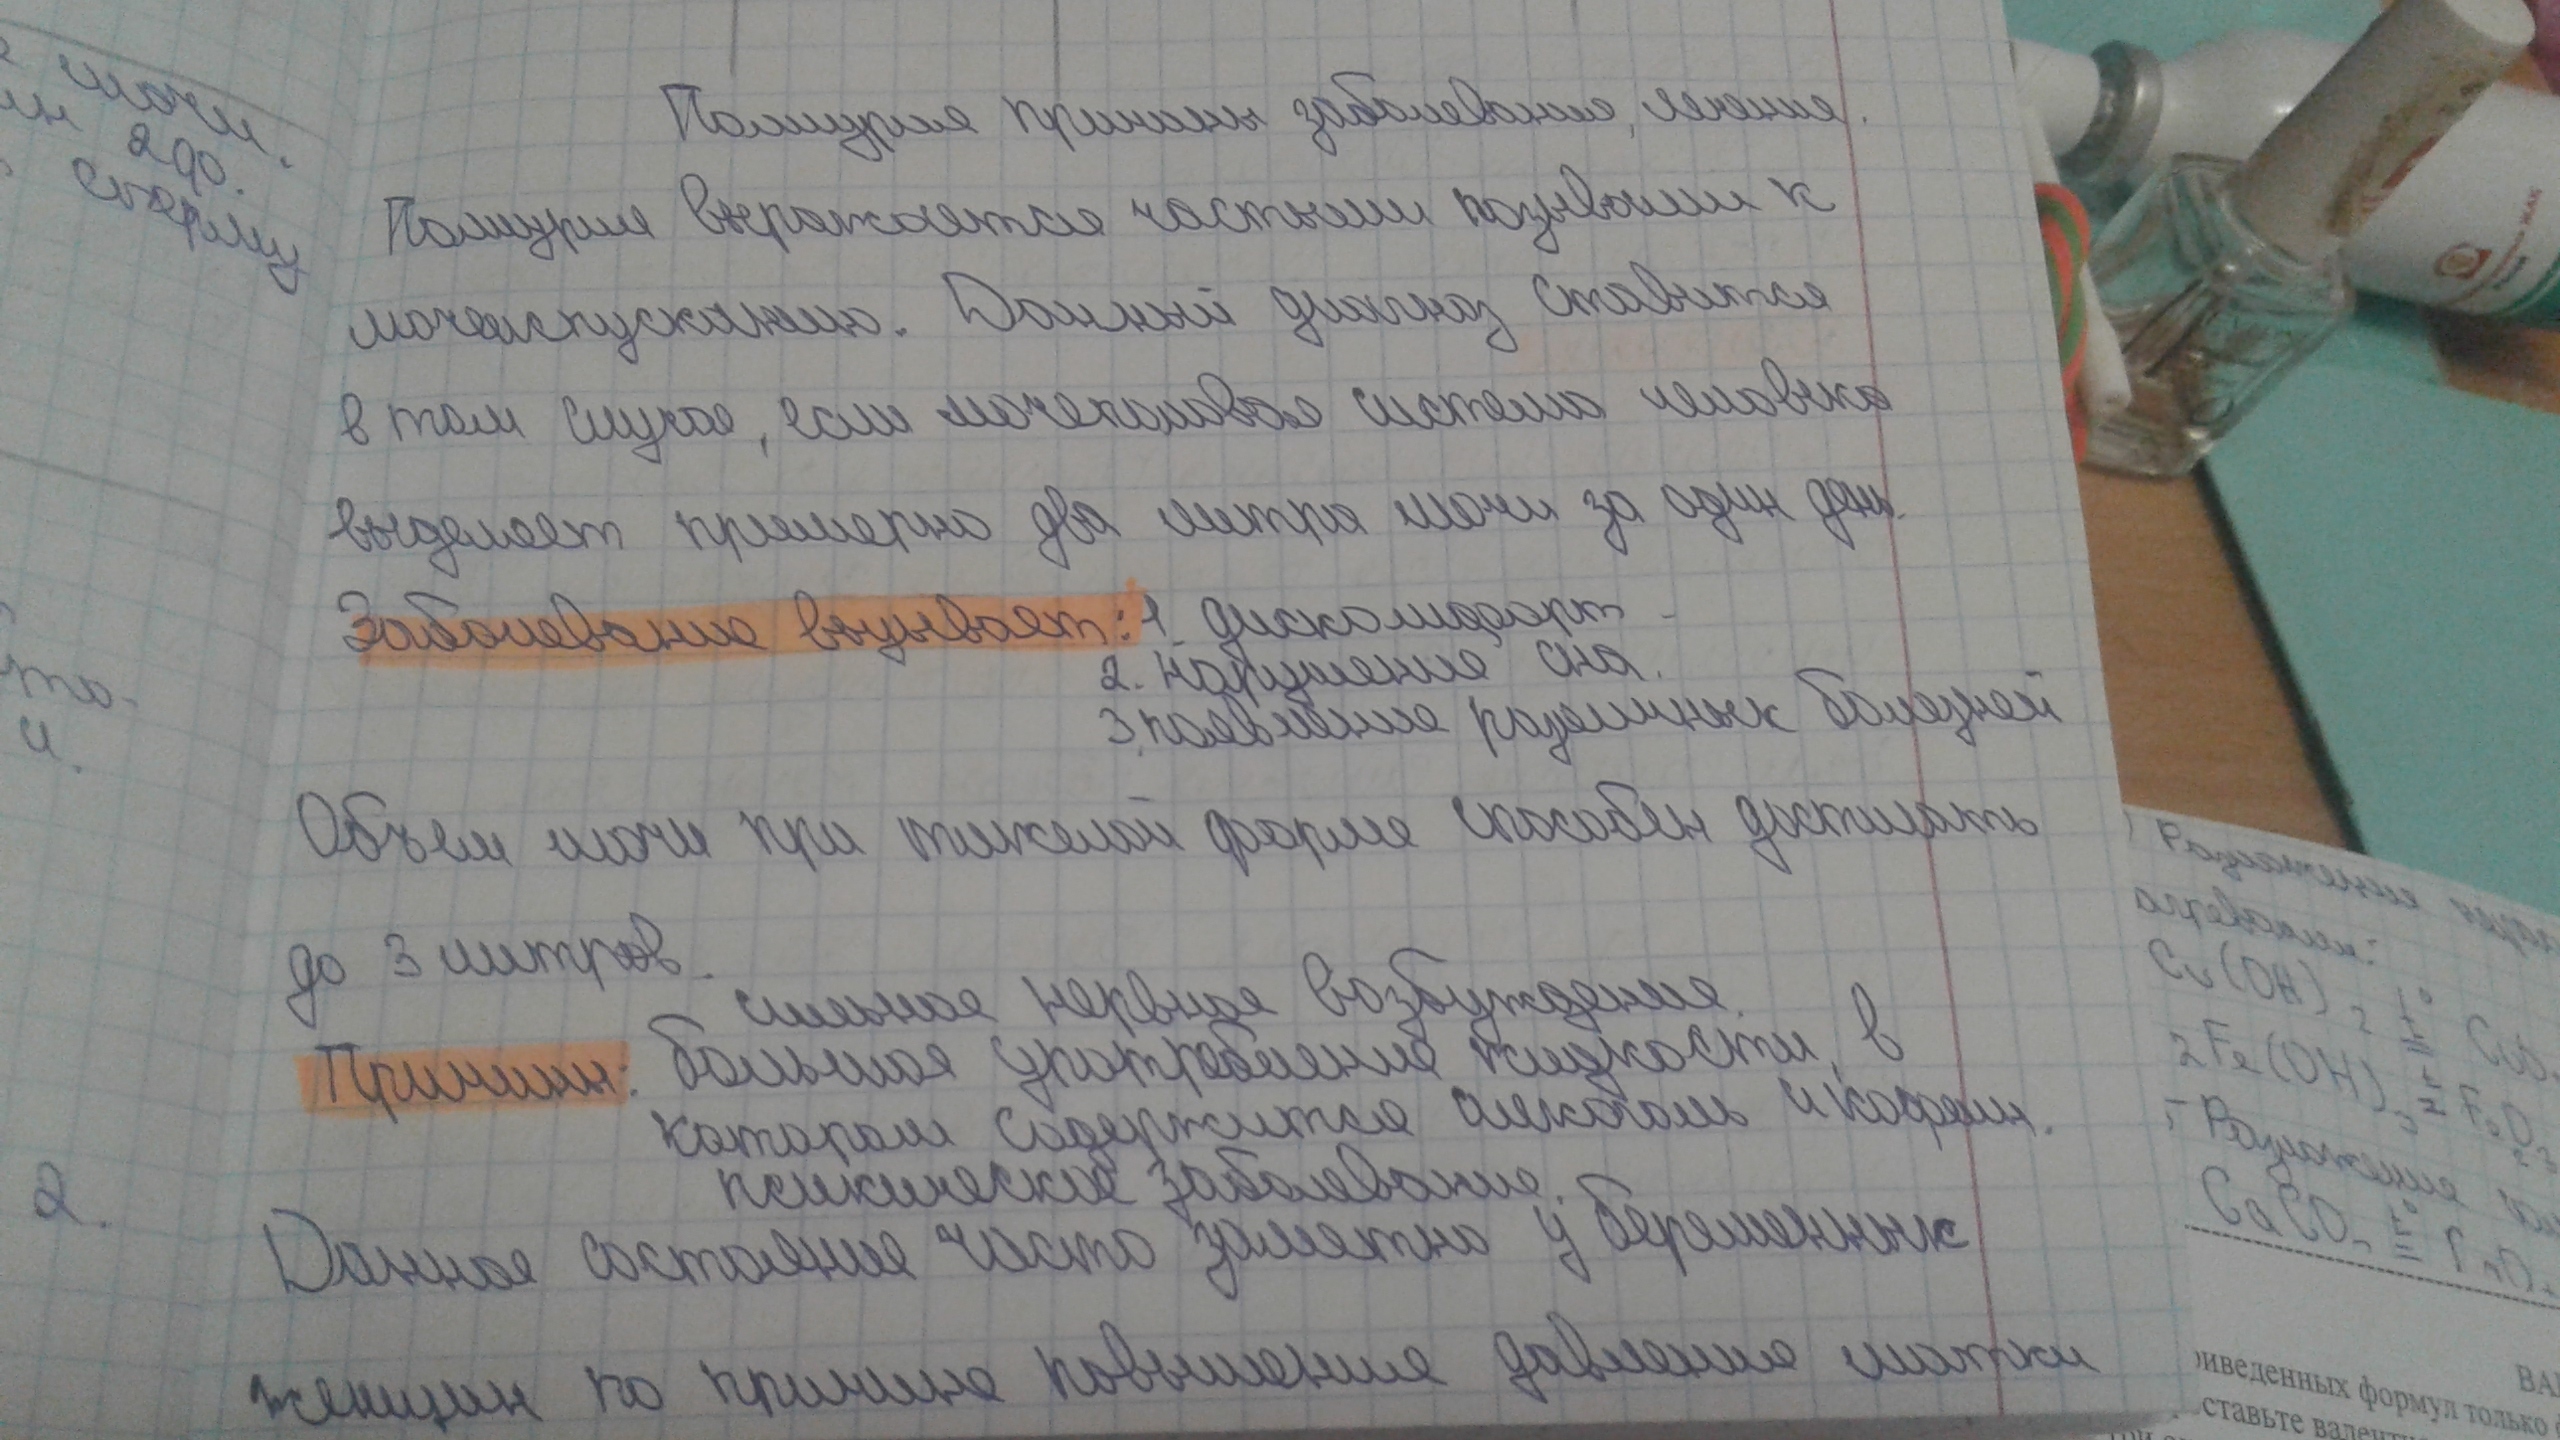 мочи.
2 до.
сперму
то-
и.
2.
Полиурия причины заболевания, лечение.
Полиурия выражается частыми позывами к
мочеиспусканию. Данный диагноз ставится
в том случае, если мочеполовая система человека
выделяет примерно два литра мочи за один день.
Заболевание вызывает: 1. дискомфорт -
2. нарушение сна.
3. появление различных болезней
Объем мочи при тяжелой форме способен достигать
до 3 литров.
сильное нервное возбуждение.
Причины: большое употребление жидкости, в
котором содержится алкоголь и кофеин.
психические заболевание.
Данное состояние часто заметно у беременных
женщин по причине повышение давление матки
Разложение
Cu(OH)2 t° = CuO
2Fe(OH)3 t = Fe2O3
Разложение
CaCO3 t° =
ВА
иведенных формул только
ставьте